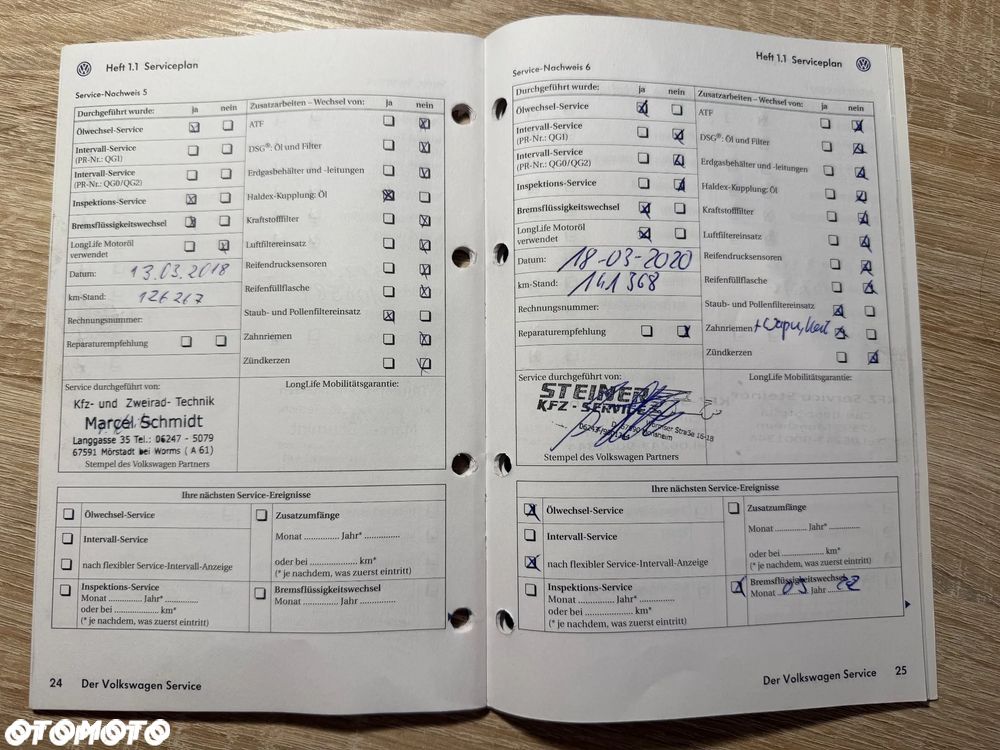 Heft 1.1 Serviceplan
Service-Nachweis 5
Durchgeführt wurde: ja nein
Ölwechsel-Service
Intervall-Service
(PR-Nr.: QG1)
Intervall-Service
(PR-Nr.: QG0/QG2)
Inspektions-Service
Bremsflüssigkeitswechsel
LongLife Motoröl
verwendet
Datum: 13.03.2018
km-Stand: 126267
Rechnungsnummer:
Reparaturempfehlung
Zusatzarbeiten – Wechsel von: ja nein
ATF
DSG®: Öl und Filter
Erdgasbehälter und -leitungen
Haldex-Kupplung: Öl
Kraftstofffilter
Luftfiltereinsatz
Reifendrucksensoren
Reifenfüllflasche
Staub- und Pollenfiltereinsatz
Zahnriemen
Zündkerzen
Service durchgeführt von:
Kfz- und Zweirad-Technik
Marcel Schmidt
Langgasse 35 Tel.: 06247 - 5079
67591 Mörstadt bei Worms ( A 61)
Stempel des Volkswagen Partners
LongLife Mobilitätsgarantie:
Ihre nächsten Service-Ereignisse
Ölwechsel-Service
Intervall-Service
nach flexibler Service-Intervall-Anzeige
Inspektions-Service
Monat ............ Jahr* ............
oder bei ............... km*
(* je nachdem, was zuerst eintritt)
Zusatzumfänge
Monat ............... Jahr* ...............
oder bei ............... km*
(* je nachdem, was zuerst eintritt)
Bremsflüssigkeitswechsel
Monat ............ Jahr ...............
24 Der Volkswagen Service
Heft 1.1 Serviceplan
Service-Nachweis 6
Durchgeführt wurde: ja nein
Ölwechsel-Service
Intervall-Service
(PR-Nr.: QG1)
Intervall-Service
(PR-Nr.: QG0/QG2)
Inspektions-Service
Bremsflüssigkeitswechsel
LongLife Motoröl
verwendet
Datum: 18-03-2020
km-Stand: 141368
Rechnungsnummer:
Reparaturempfehlung
Zusatzarbeiten – Wechsel von: ja nein
ATF
DSG®: Öl und Filter
Erdgasbehälter und -leitungen
Haldex-Kupplung: Öl
Kraftstofffilter
Luftfiltereinsatz
Reifendrucksensoren
Reifenfüllflasche
Staub- und Pollenfiltereinsatz
Zahnriemen
Zündkerzen
Service durchgeführt von:
STEINER
KFZ - SERVICE
Wormser Straße 16-18
Stempel des Volkswagen Partners
LongLife Mobilitätsgarantie:
Ihre nächsten Service-Ereignisse
Ölwechsel-Service
Intervall-Service
nach flexibler Service-Intervall-Anzeige
Inspektions-Service
Monat ............ Jahr* ............
oder bei ............... km*
(* je nachdem, was zuerst eintritt)
Zusatzumfänge
Monat ............... Jahr* ...............
oder bei ............... km*
(* je nachdem, was zuerst eintritt)
Bremsflüssigkeitswechsel
Monat 03 Jahr 22
Der Volkswagen Service 25
OTOMOTO